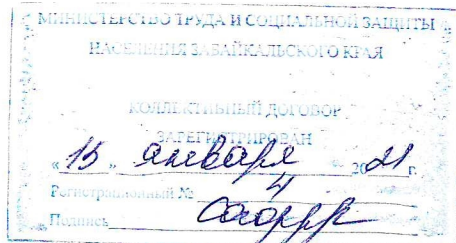 МИНИСТЕРСТВО ТРУДА И СОЦИАЛЬНОЙ ЗАЩИТЫ
НАСЕЛЕНИЯ ЗАБАЙКАЛЬСКОГО КРАЯ
КОЛЛЕКТИВНЫЙ ДОГОВОР
ЗАРЕГИСТРИРОВАН
« 15 » января 2021 г.
Регистрационный № 4
Подпись